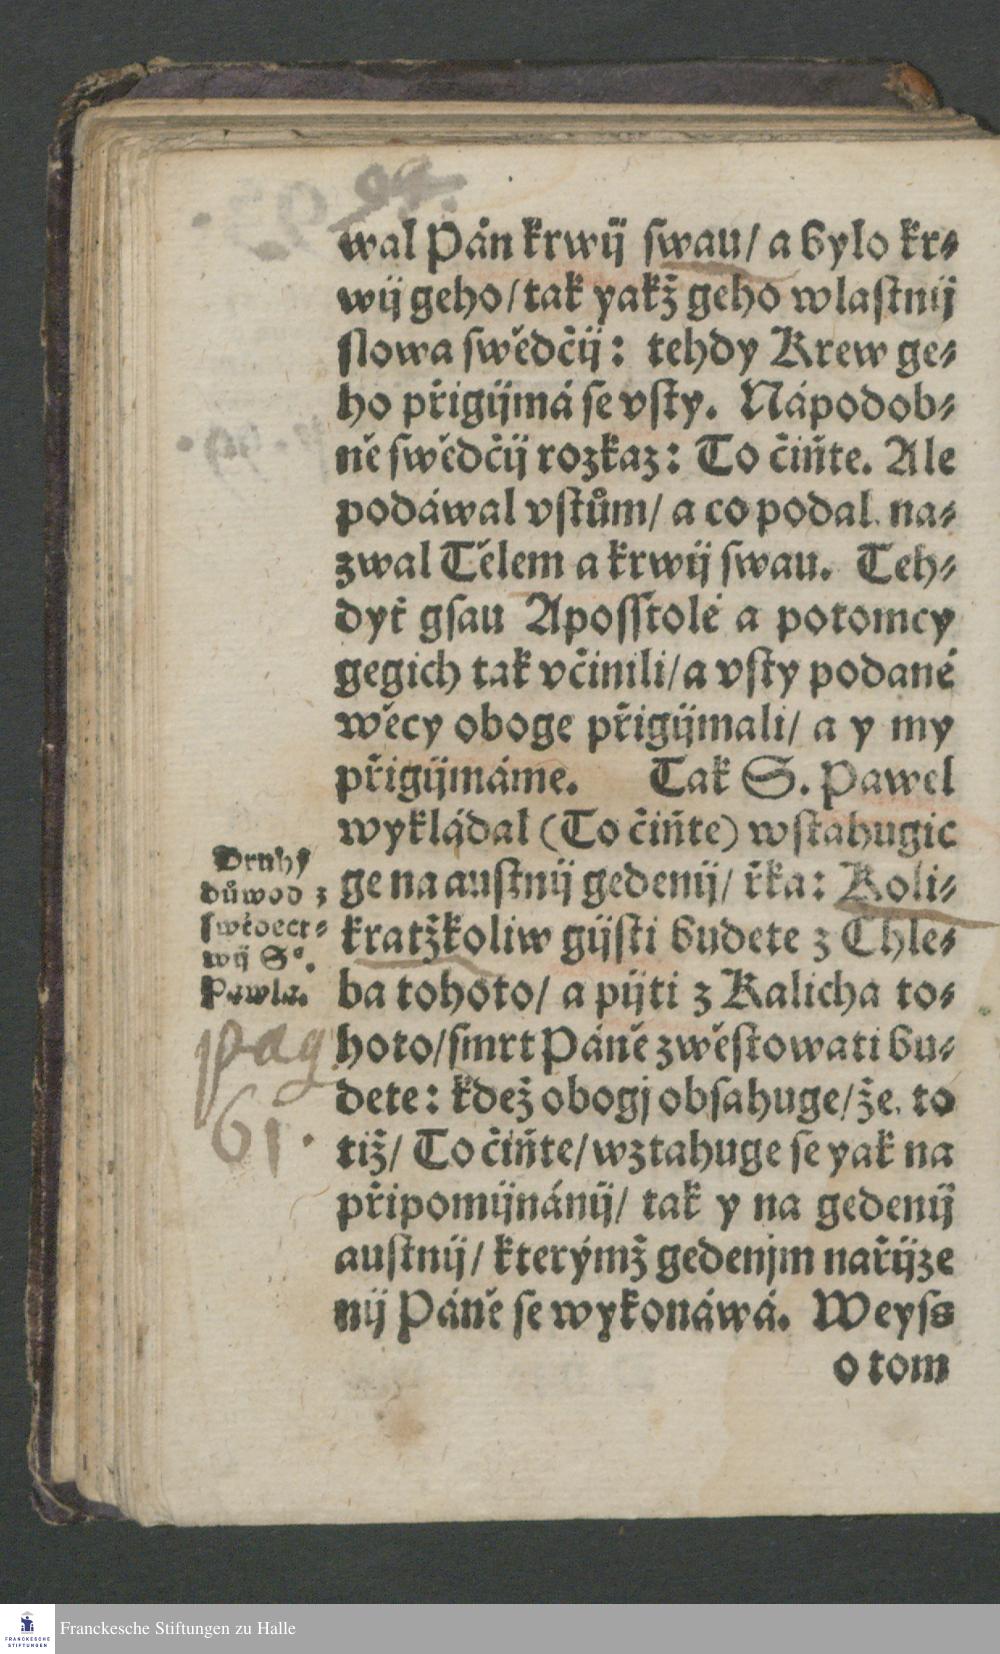 94.
wal Pán krwij swau/ a bylo kr⸗
wij geho/ tak yakž geho wlastnij
slowa swědčij: tehdy Krew ge⸗
ho přigijmá se vsty. Nápodob⸗
ně swědčij rozkaz: To čiňte. Ale
podáwal vstům/ a co podal. na⸗
zwal Tělem a krwij swau. Teh⸗
dyť gsau Aposstolé a potomcy
gegich tak včinili/ a vsty podané
wěcy oboge přigijmali/ a y my
přigijmáme. Tak S. Pawel
wykládal (To čiňte) wstahugic
ge na austnij gedenij/ řka: Koli⸗
kratžkoliw gijsti budete z Chle⸗
ba tohoto/ a pijti z Kalicha to⸗
hoto/ smrt Páně zwěstowati bu⸗
dete: kdež obogj obsahuge/ že. to
tiž/ To čiňte/ wztahuge se yak na
připomijnánij/ tak y na gedenij
austnij/ kterýmž gedenjm nařijze
nij Páně se wykonáwá. Weyss
o tom
Druhý
důwod z
swědect⸗
wij Sº.
Pawla.
pag
61.
Franckesche Stiftungen zu Halle
FRANCKESCHE
STIFTUNGEN